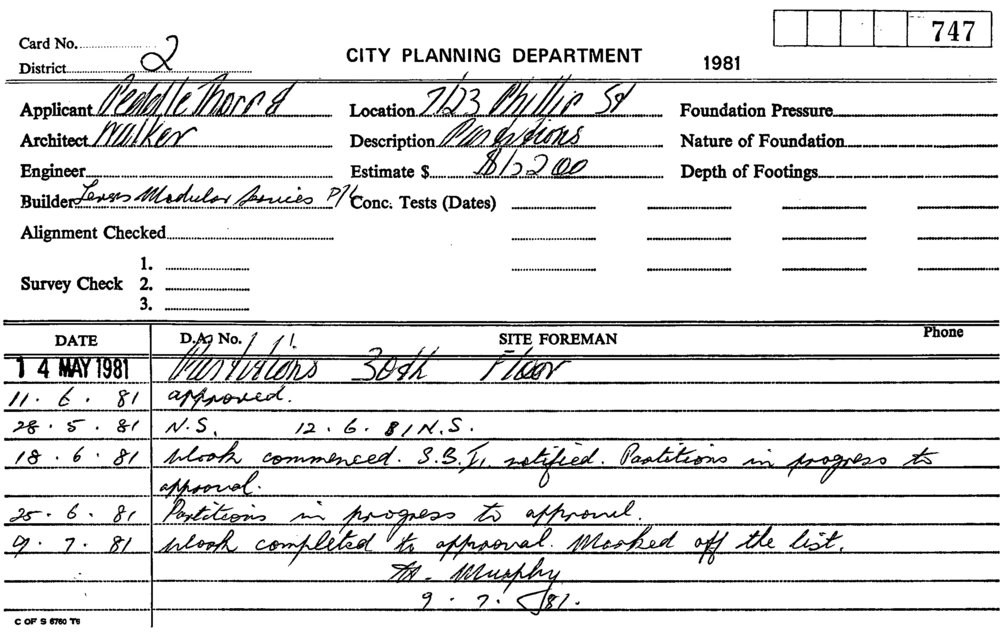 747
Card No.
District 2
CITY PLANNING DEPARTMENT 1981
Applicant Peddle Thorp & Location 7/23 Phillip St Foundation Pressure
Architect Walker Description Partitions Nature of Foundation
Engineer Estimate $ $12200 Depth of Footings
Builder Modular Services P/L Conc. Tests (Dates)
Alignment Checked
1.
Survey Check 2.
3.
DATE D.A. No. SITE FOREMAN Phone
14 MAY 1981 Partitions 30th Floor
11. 6. 81 approved.
28. 5. 81 N.S. 12. 6. 81 N.S.
18. 6. 81 Work commenced. S.B.I. notified. Partitions in progress to
approval.
25. 6. 81 Partitions in progress to approval.
9. 7. 81 Work completed to approval. Marked off the list.
Murphy
9. 7. 81.
C OF S 6760 T6